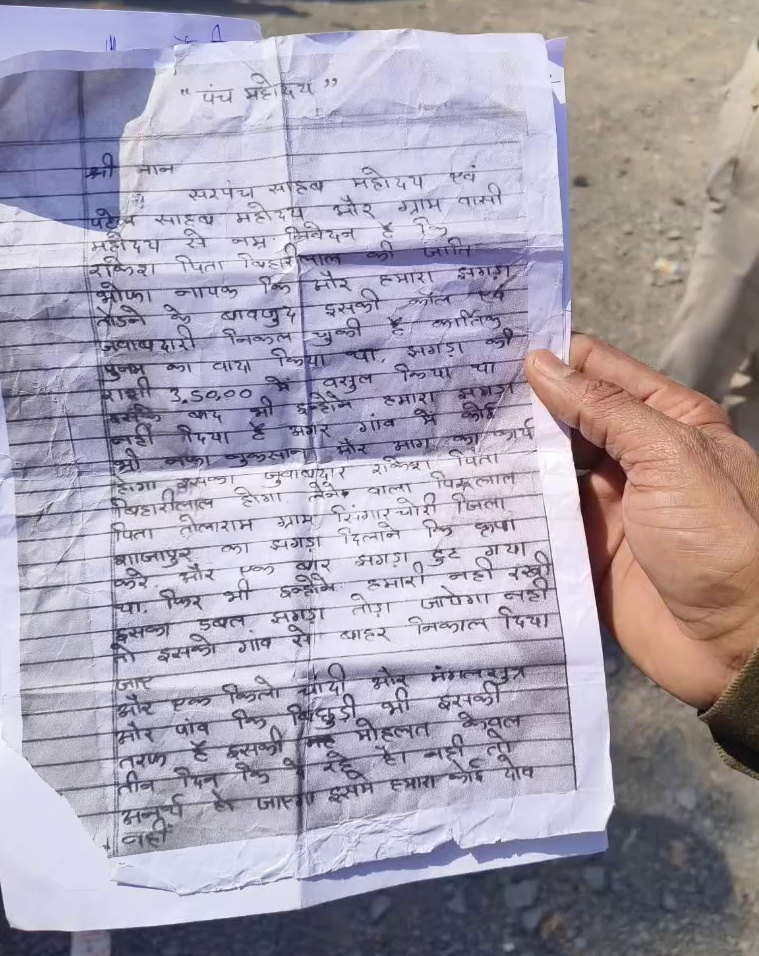 "पंच महोदय"
श्री मान
सरपंच साहब महोदय एवं
पटेल साहब महोदय और ग्राम वासी
महोदय से नम्र निवेदन है कि
राकेश पिता बिहारीलाल की जाति
नायक कि और हमारा झगड़ा
तोडने के बावजुद इसकी कौल एवं
जवाबदारी निकल चुकी है कार्तिक
पुनम का वादा किया था. झगड़ा की
राशी 3,50,00 में वसुल किया था
इसके बाद भी इन्होंने हमारा झगड़ा
नही दिया है अगर गांव में कोई
भी नफा नुकसान और आग का कार्य
होगा इसका जुवाबदार राकेश पिता
बिहारीलाल होगा लेने वाला
पिता तोलाराम ग्राम सिंगारचोरी जिला
शाजापुर का झगड़ा दिलाने कि कृपा
करे. और एक बार झगड़ा टुट गया
था. फिर भी इन्होंने हमारी नही रखी
इसका डबल झगड़ा तोड़ा जायेगा नही
तो इसको गांव से बाहर निकाल दिया
जाए
और एक किलो चांदी और मंगलसुत्र
और पांव कि बिछुड़ी भी इसकी
तरफ है इसकी मोहलत केवल
तीन दिन कि दे रहे है। नही तो
अनर्थ हो जाएगा इसमे हमारा कोई दोष
नही